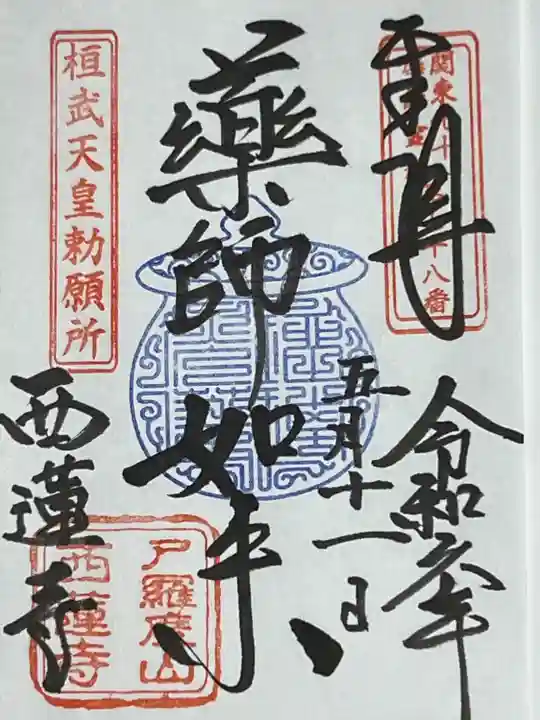 奉拝
関東九十一
十八番
令和六年
五月十一日
薬師如来
桓武天皇勅願所
西蓮寺
尸羅度山
西蓮寺